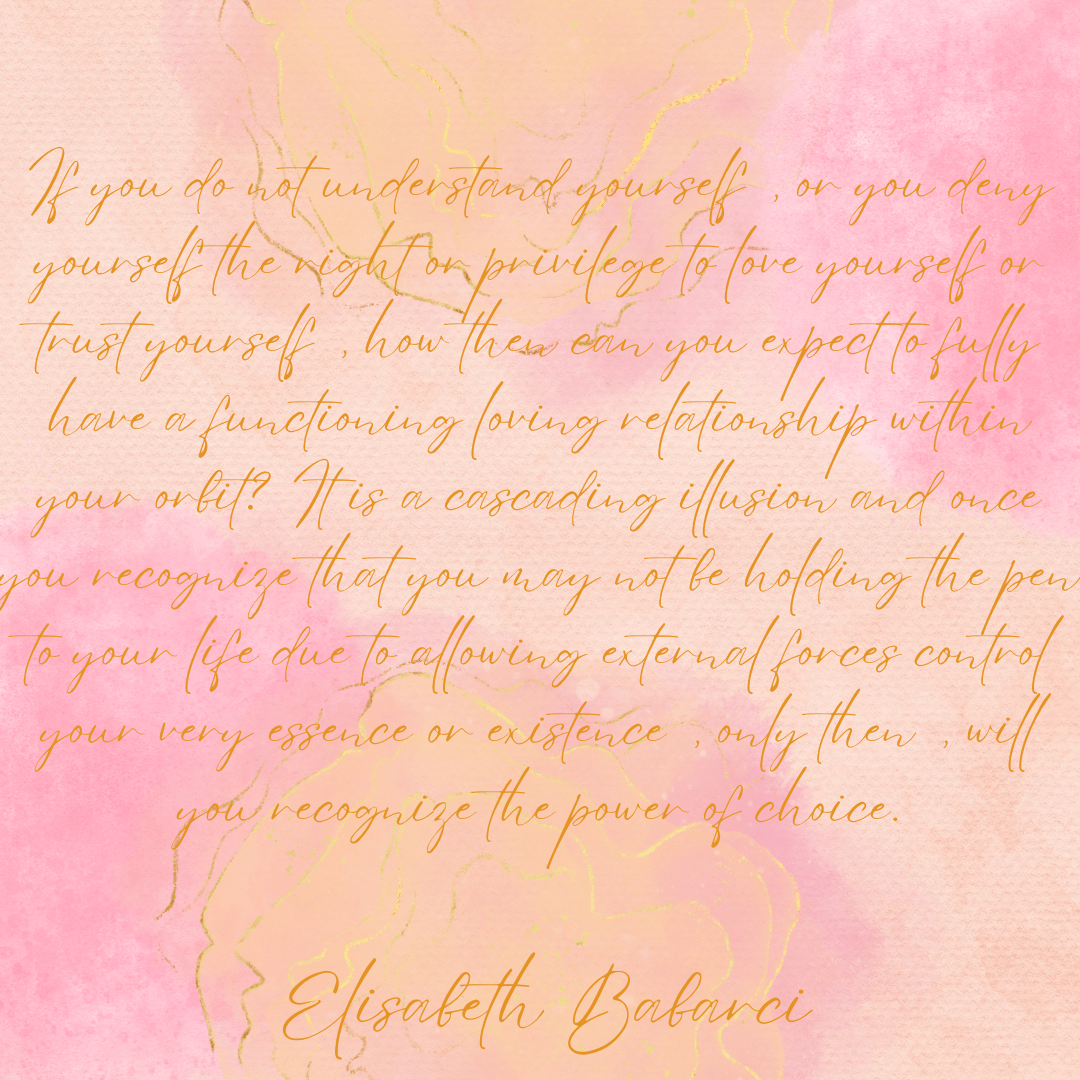 If you do not understand yourself , or you deny
yourself the right or privilege to love yourself or
trust yourself , how then can you expect to fully
have a functioning loving relationship within
your orbit? It is a cascading illusion and once
you recognize that you may not be holding the pen
to your life due to allowing external forces control
your very essence or existence , only then , will
you recognize the power of choice.
Elisabeth Babarci